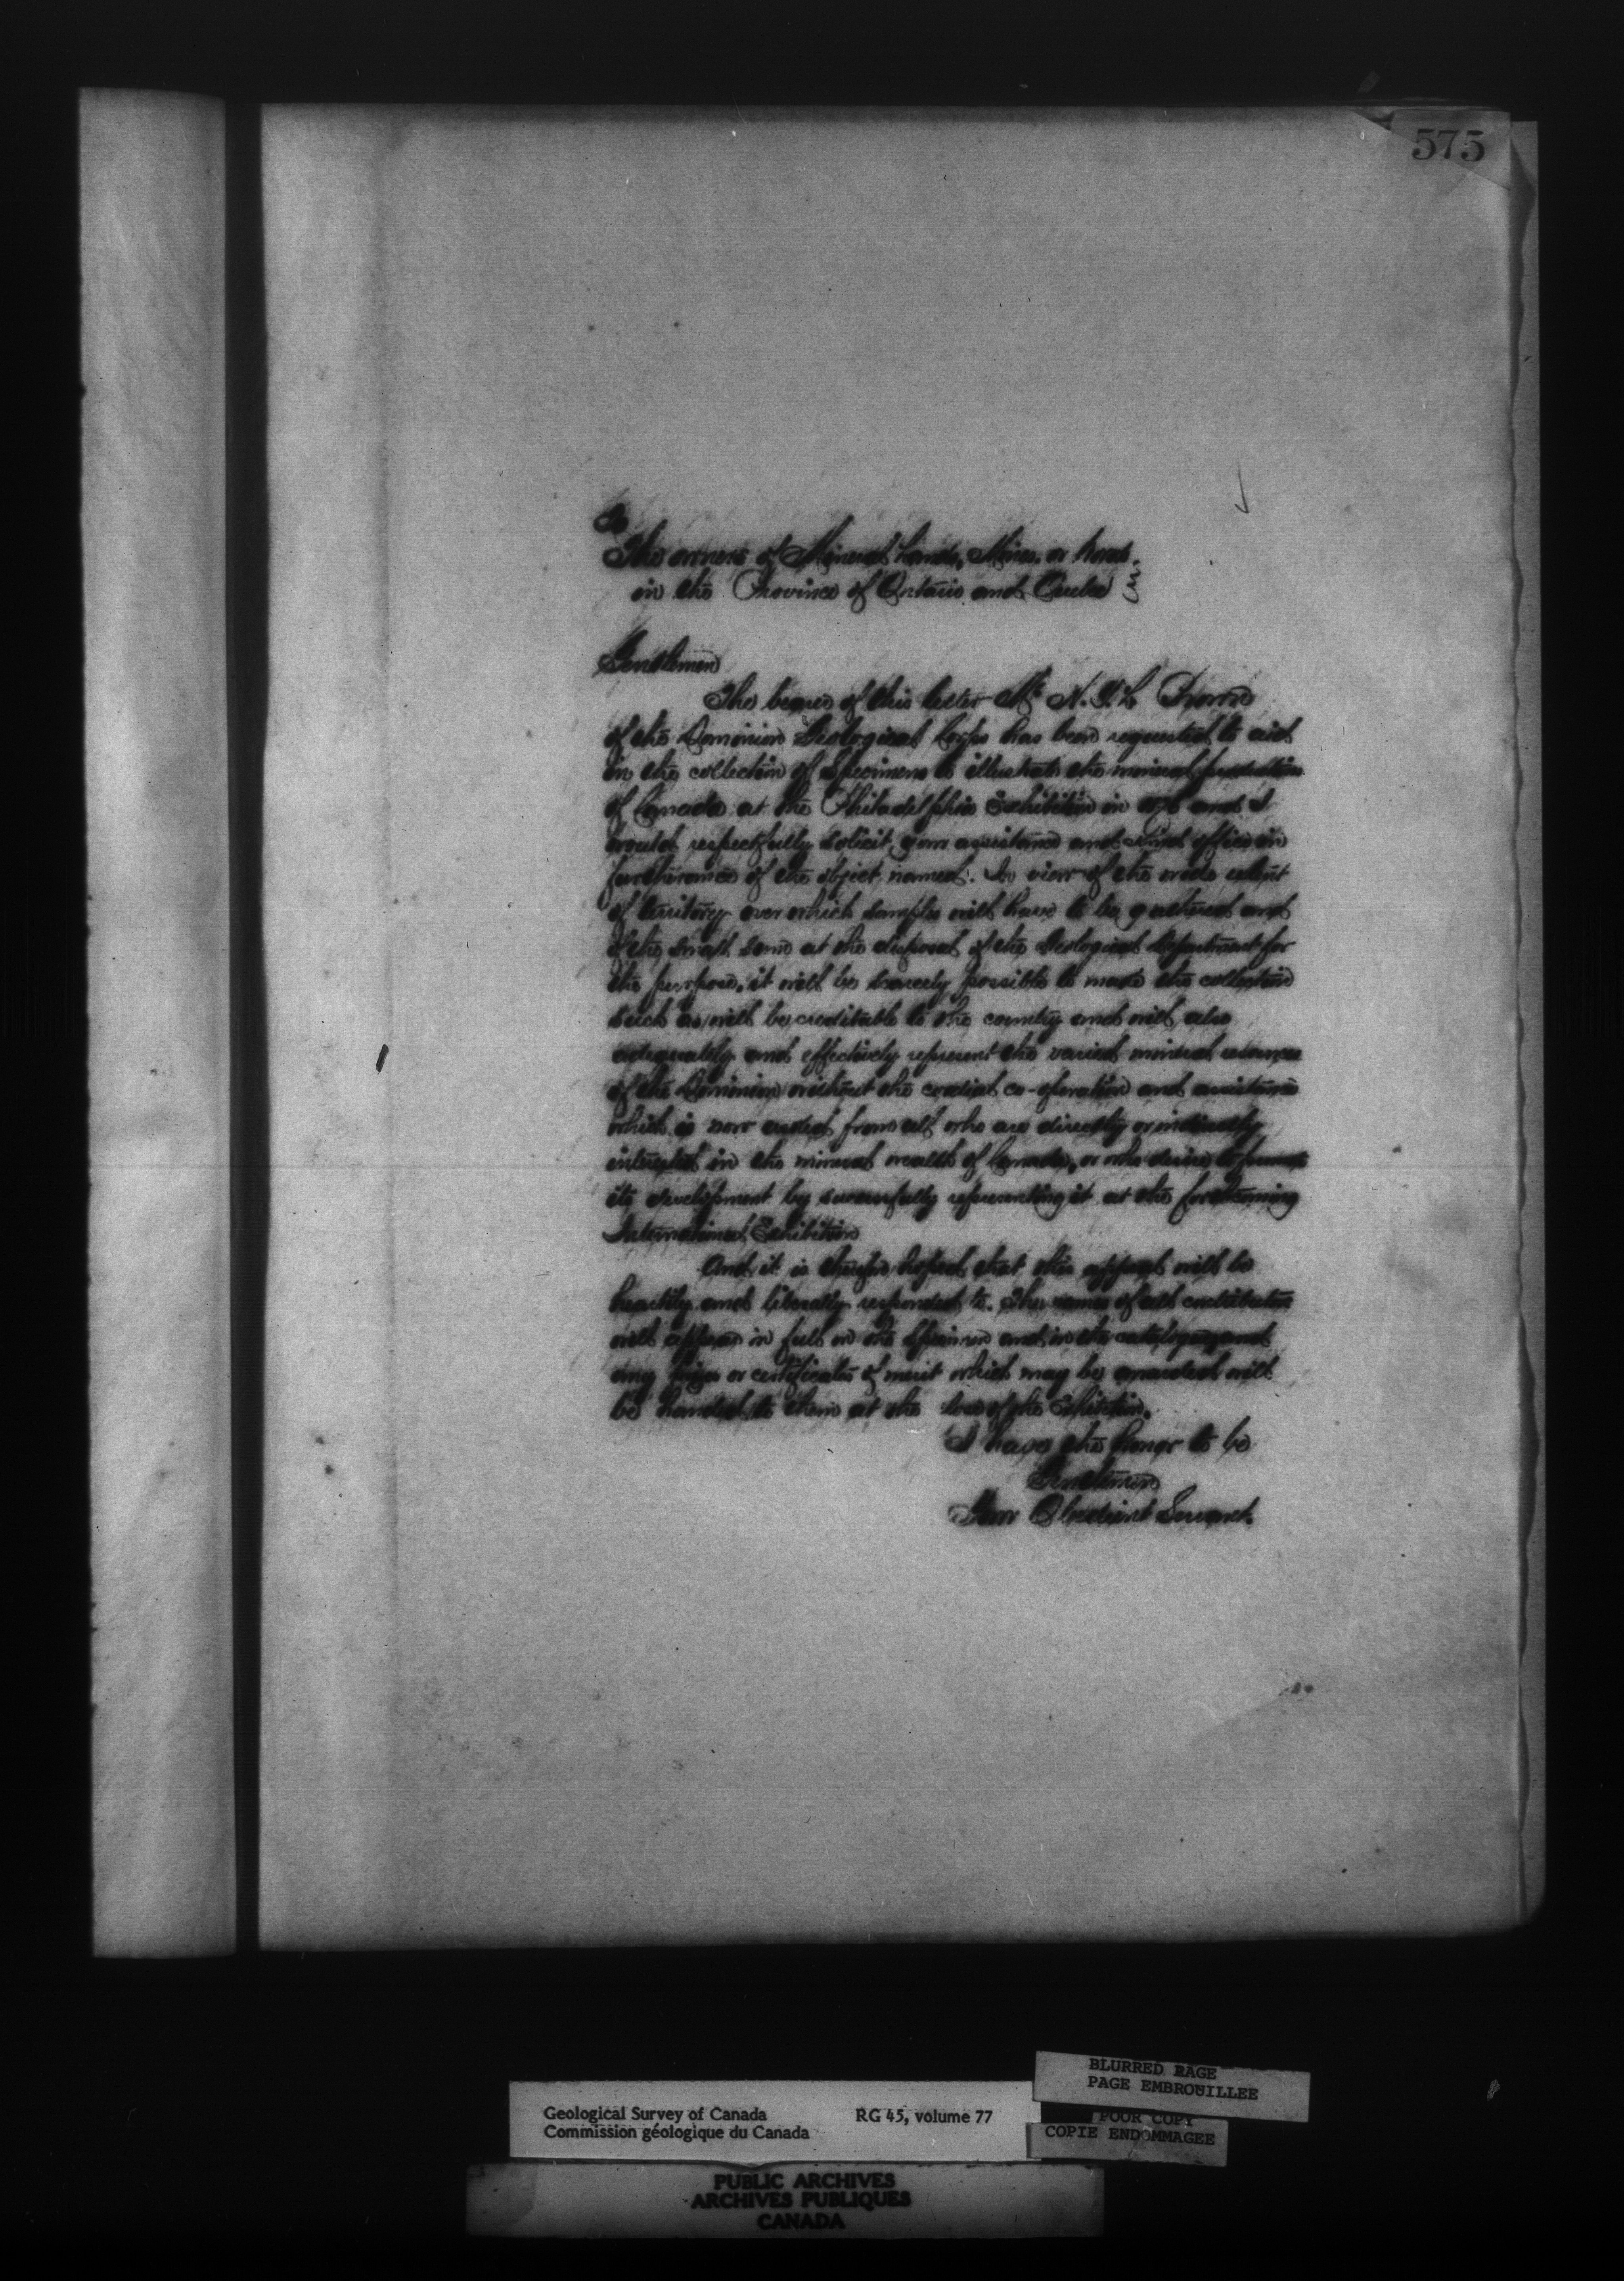 575
To
The owners of Mineral Lands, Mines, or
in the Province of Ontario and Quebec
Gentlemen
The bearer of this letter Mr N.
of the Dominion Geological Corps has been requested to aid
in the collection of Specimens to illustrate the mineral
of Canada at the Philadelphia Exhibition in 1876 and I
would respectfully solicit your assistance and kind offices in
furtherance of the object named. In view of the wide extent
of territory over which samples will have to be gathered and
of the small sum at the disposal of the Geological Department for
the purpose, it will be scarcely possible to make the collection
such as will be creditable to the country and will also
adequately and effectively represent the varied mineral resources
of the Dominion without the cordial co-operation and assistance
which is now asked from all who are directly or indirectly
interested in the mineral wealth of Canada, or who desire to
its development by successfully representing it at the forthcoming
International Exhibition
And it is therefore hoped that this appeal will be
heartily and liberally responded to. The names of all contributors
will appear in full on the specimen and in the catalogue and
any prizes or certificates of merit which may be awarded will
be handed to them at the close of the Exhibition.
I have the honor to be
Gentlemen
Your Obedient Servant.
BLURRED PAGE
PAGE EMBROUILLEE
Geological Survey of Canada RG 45, volume 77
Commission géologique du Canada
POOR COPY
COPIE ENDOMMAGEE
PUBLIC ARCHIVES
ARCHIVES PUBLIQUES
CANADA